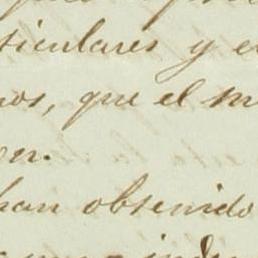 ticulares y el
nos, que el m
en.
han obtenido